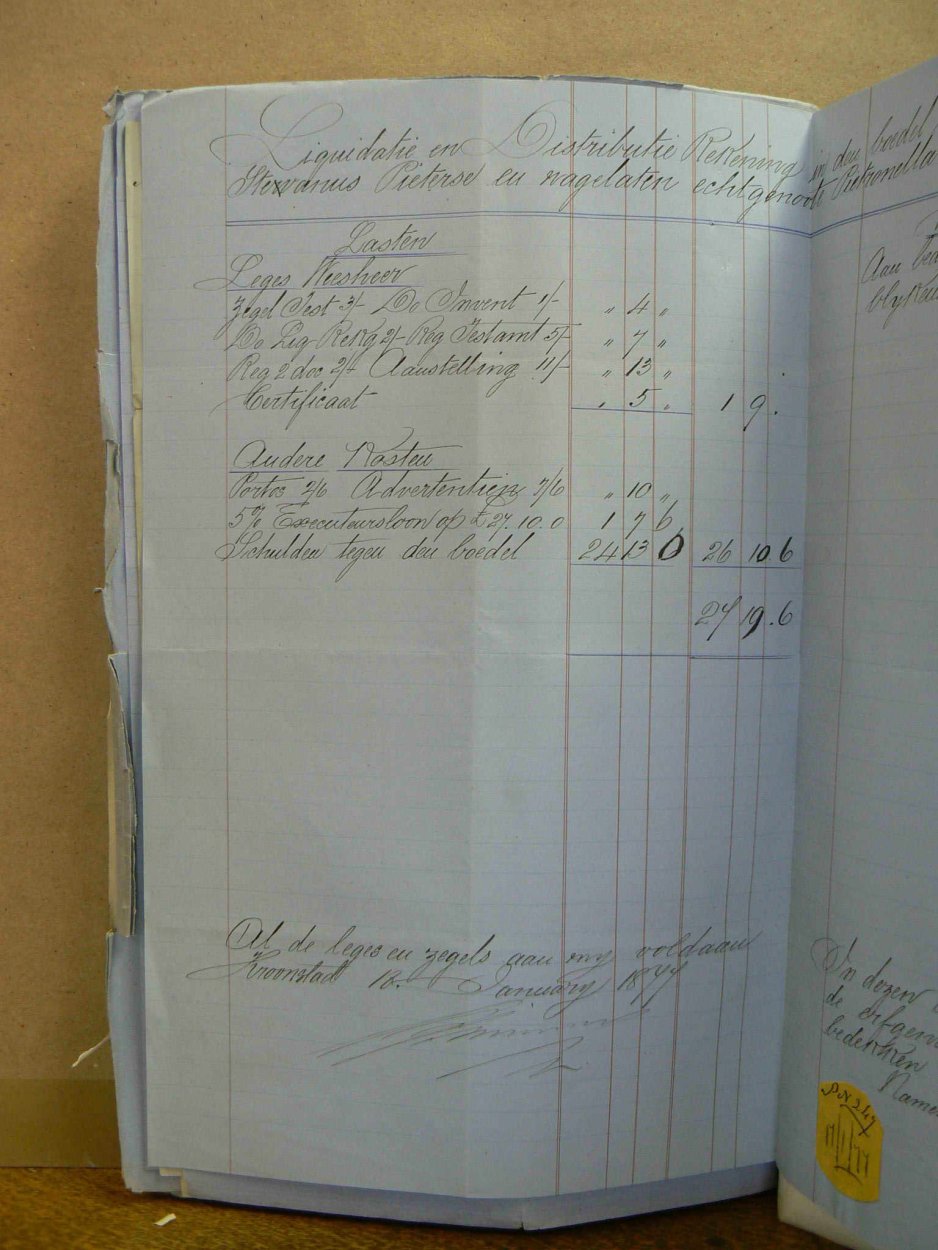 Liquidatie en Distributie Rekening in den boedel
Stevanus Pieterse en nagelaten echtgenoote Pietronella
Lasten
Leges Weesheer
Zegel Test 3/- Do Invent 1/- " 4 "
Do Liq Rekg 2/- Reg Testamt 5/- " 7 "
Reg 2 doc 2/- Aanstelling 11/- " 13 "
Certificaat " 5 " 1 9 .
Andere Kosten
Portos 2/6 Advertentien 7/6 " 10 "
5% Executeursloon op £27.10.0 1 7 6
Schulden tegen den boedel 24 13 0 26 10 6
27 19 . 6
Al de leges en zegels aan my voldaan
Kroonstad 18. January 1877
Aan
blyken
In dezen
de erfgen
bedekken
Name
PN 247